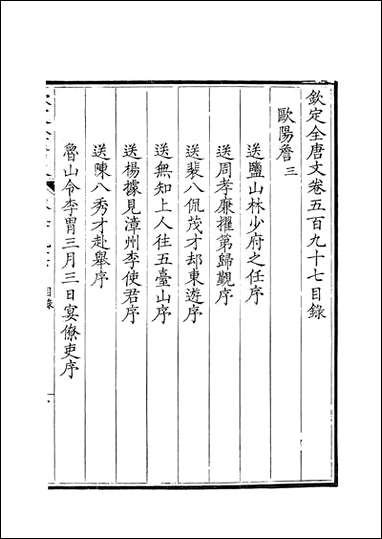 欽定全唐文卷五百九十七目錄
歐陽詹三
送鹽山林少府之任序
送周孝廉擢第歸覲序
送裴八侃茂才却東遊序
送無知上人往五臺山序
送楊據見漳州李使君序
送陳八秀才赴舉序
魯山令李胃三月三日宴僚吏序
目錄